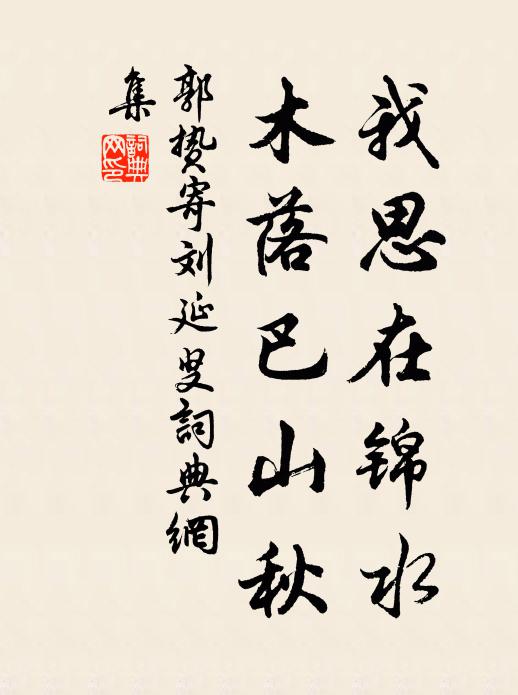 我思在锦水
木落巴山秋
郭贽寄刘延叟詞典網
集
詞典
网印